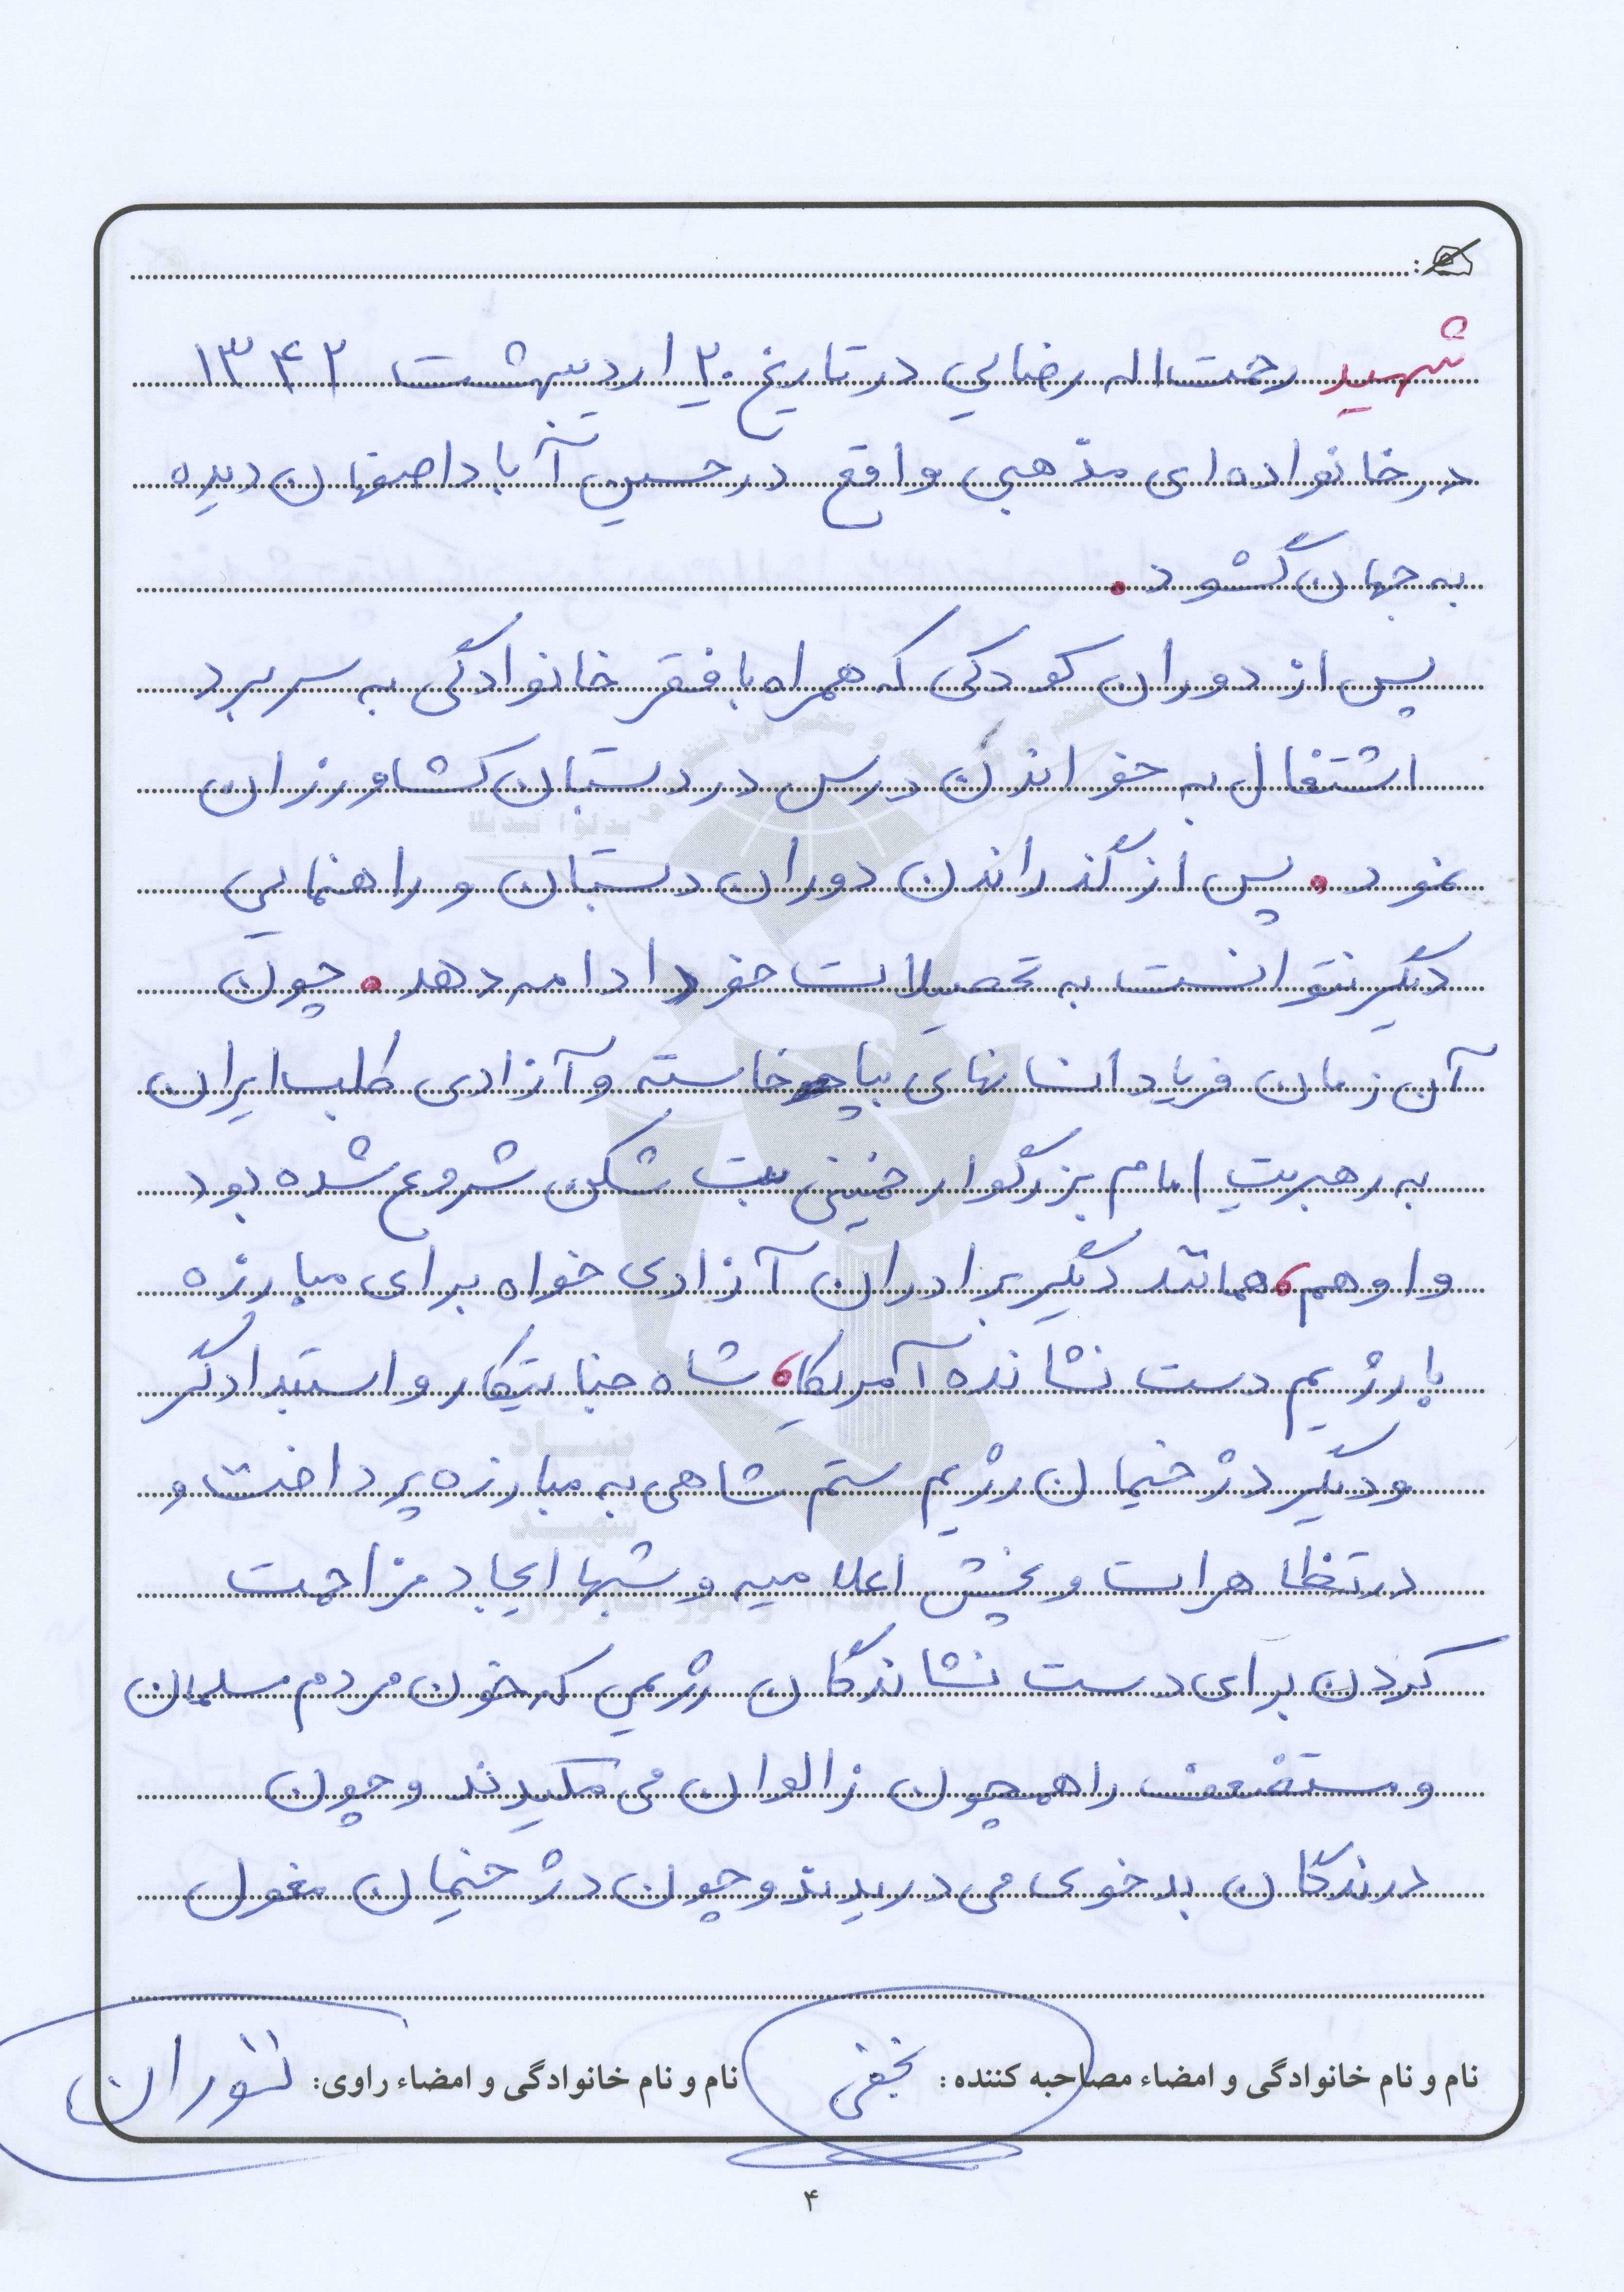 شهید رحمت‌اله رضایی در تاریخ ۲۰ اردیبهشت ۱۳۴۲
در خانواده‌ای مذهبی واقع در حسین آباد اصفهان دیده
به جهان گشود.
پس از دوران کودکی که همراه با فقر خانوادگی به سر برد
اشتغال به خواندن درس در دبستان کشاورزان
نمود. پس از گذراندن دوران دبستان و راهنمایی
دیگر نتوانست به تحصیلات خود ادامه دهد. چون
آن زمان فریاد انسانهای بپاخاسته و آزادی طلب ایران
به رهبریت امام بزرگوار خمینی بت شکن شروع شده بود
و او هم، همانند دیگر برادران آزادی خواه برای مبارزه
با رژیم دست نشانده آمریکا، شاه جنایتکار و استبدادگر
و دیگر دژخیمان رژیم ستم شاهی به مبارزه پرداخت و
در تظاهرات و پخش اعلامیه و شبها ایجاد مزاحمت
کردن برای دست نشاندگان رژیمی که خون مردم مسلمان
و مستضعف را همچون زالوان می مکیدند و چون
درندگان بد خوی می دریدند و چون دژخیمان مغول
نام و نام خانوادگی و امضاء مصاحبه کننده: نجفی نام و نام خانوادگی و امضاء راوی:
۴
بنیاد
شهید